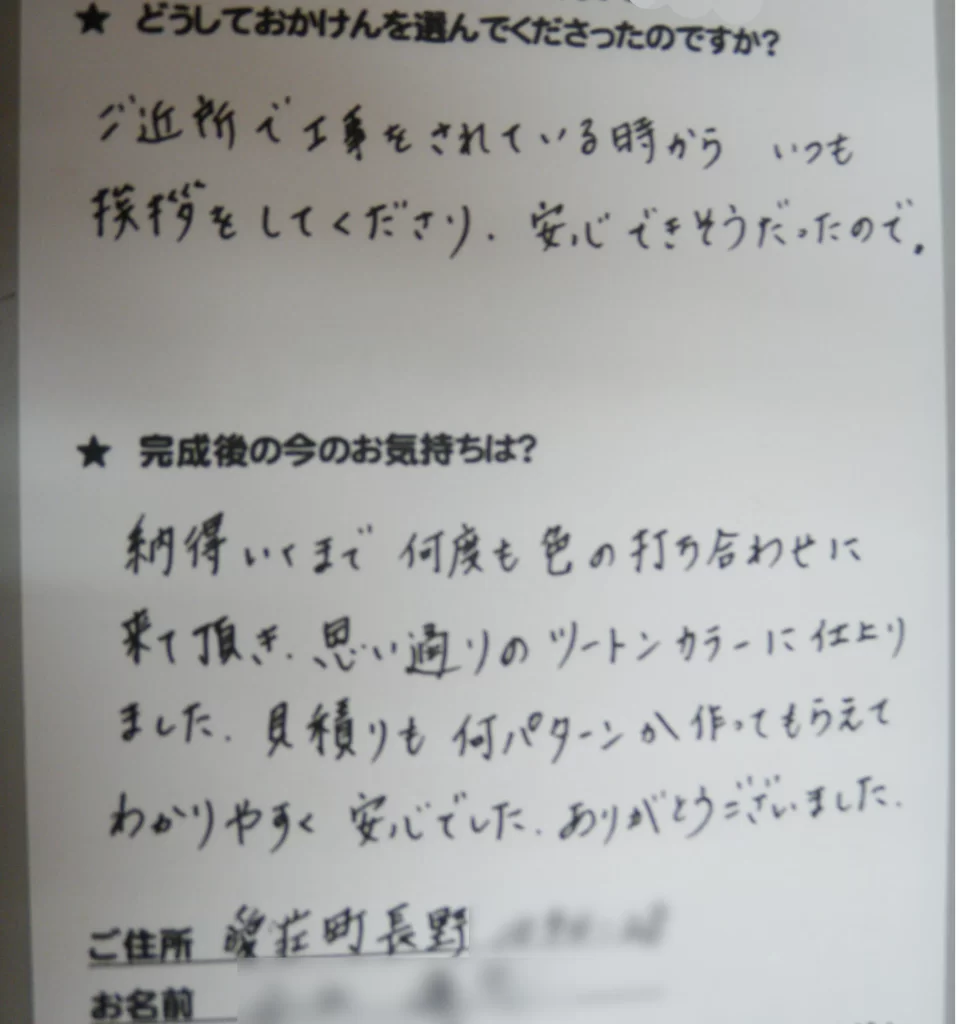 ★ どうしておかけんを選んでくださったのですか?
ご近所で工事をされている時から いつも
挨拶をしてくださり、安心できそうだったので。
★ 完成後の今のお気持ちは?
納得いくまで 何度も色の打ち合わせに
来て頂き、思い通りのツートンカラーに仕上り
ました。見積りも 何パターンか作ってもらえて
わかりやすく 安心でした。ありがとうございました。
ご住所 愛荘町長野
お名前